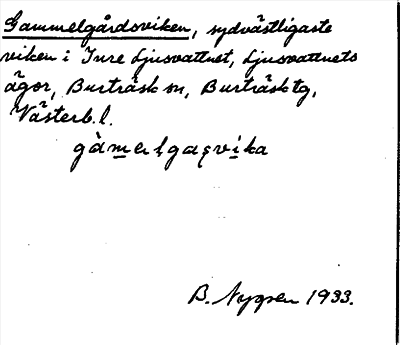 Gammelgårdsviken, sydvästligaste
viken i Inre Ljusvattnet, Ljusvattnets
ägor, Burträsk sn, Burträsk tg,
Västerb. l.
B. Nygren 1933.